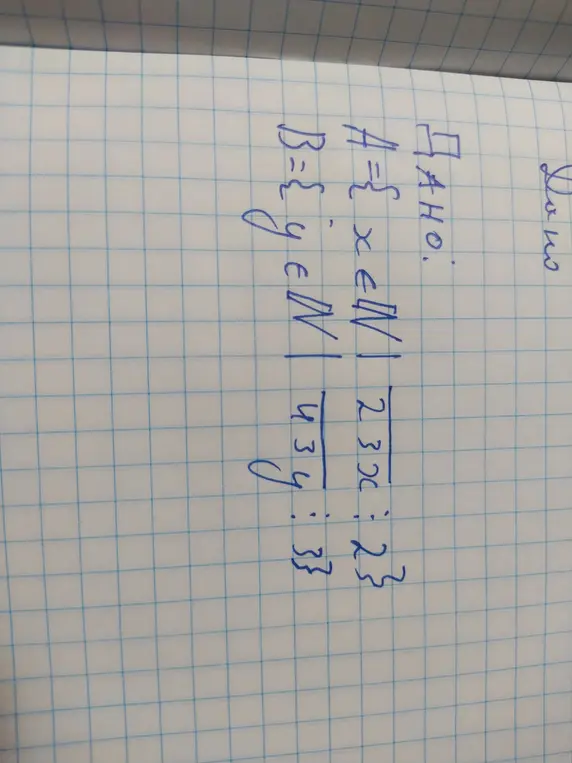 Дано
ДАНО:
A={ x ∈ ℕ | \overline{23x} ⋮ 2}
B={ y ∈ ℕ | \overline{43y} ⋮ 3}